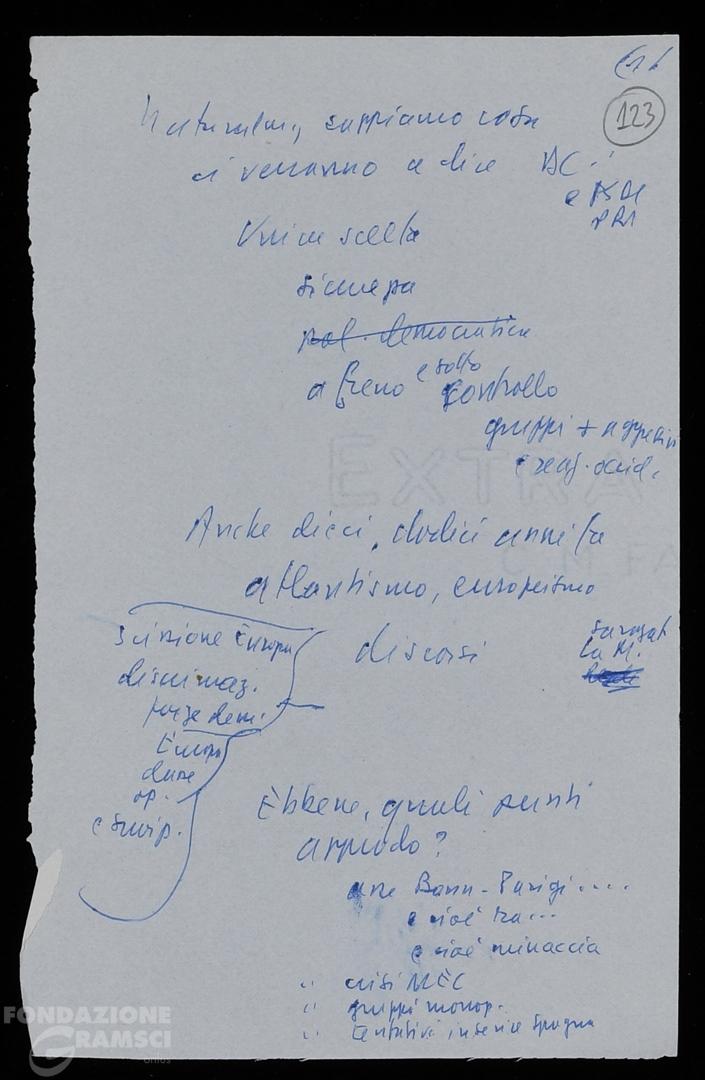 123
Naturalm., sappiamo cosa
ci verranno a dire DC
e PSDI
PRI
Unica scelta
sicurezza
pol. democratica
a freno e sotto controllo
gruppi + aggressivi
e reaz. occid.
Anche dieci, dodici anni fa
atlantismo, europeismo
scissione Europa
discriminaz.
forze dem.
Europa
due
discorsi
Saragat
La M.
Ebbene, quali punti
approdo?
asse Bonn-Parigi....
e cioè tra...
e cioè minaccia
" crisi MEC
" gruppi monop.
" tentativi inserire Spagna
EXTRA
FONDAZIONE
GRAMSCI
onlus